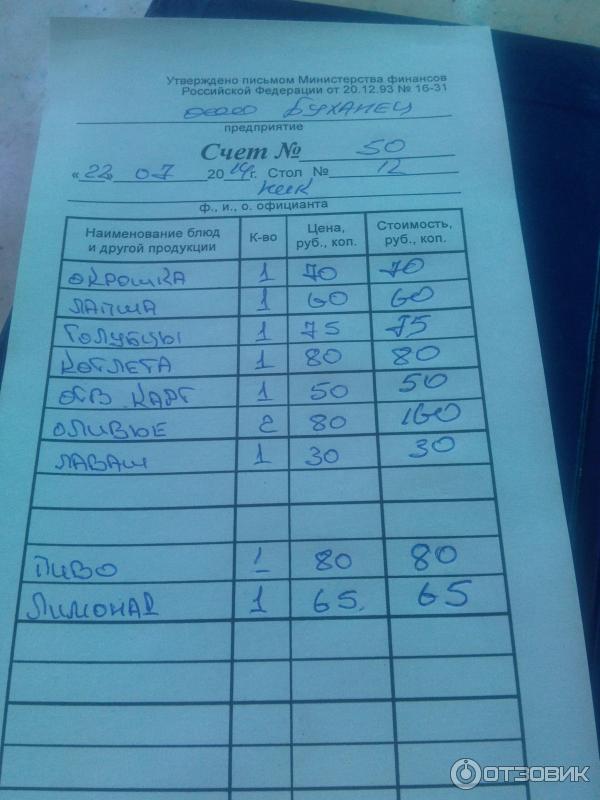 Утверждено письмом Министерства финансов
Российской Федерации от 20.12.93 № 16-31
ооо Буханец
предприятие
Счет № 50
«22» 07 2014г. Стол № 12
ф., и., о. официанта
Наименование блюд и другой продукции К-во Цена, руб., коп. Стоимость, руб., коп.
ОКРОШКА 1 70 70
ЛАПША 1 60 60
ГОЛУБЦЫ 1 75 75
КОТЛЕТА 1 80 80
ОТВ КАРТ 1 50 50
ОЛИВЬЕ 2 80 160
ЛАВАШ 1 30 30
ПИВО 1 80 80
ЛИМОНАД 1 65. 65
ОТЗОВИК